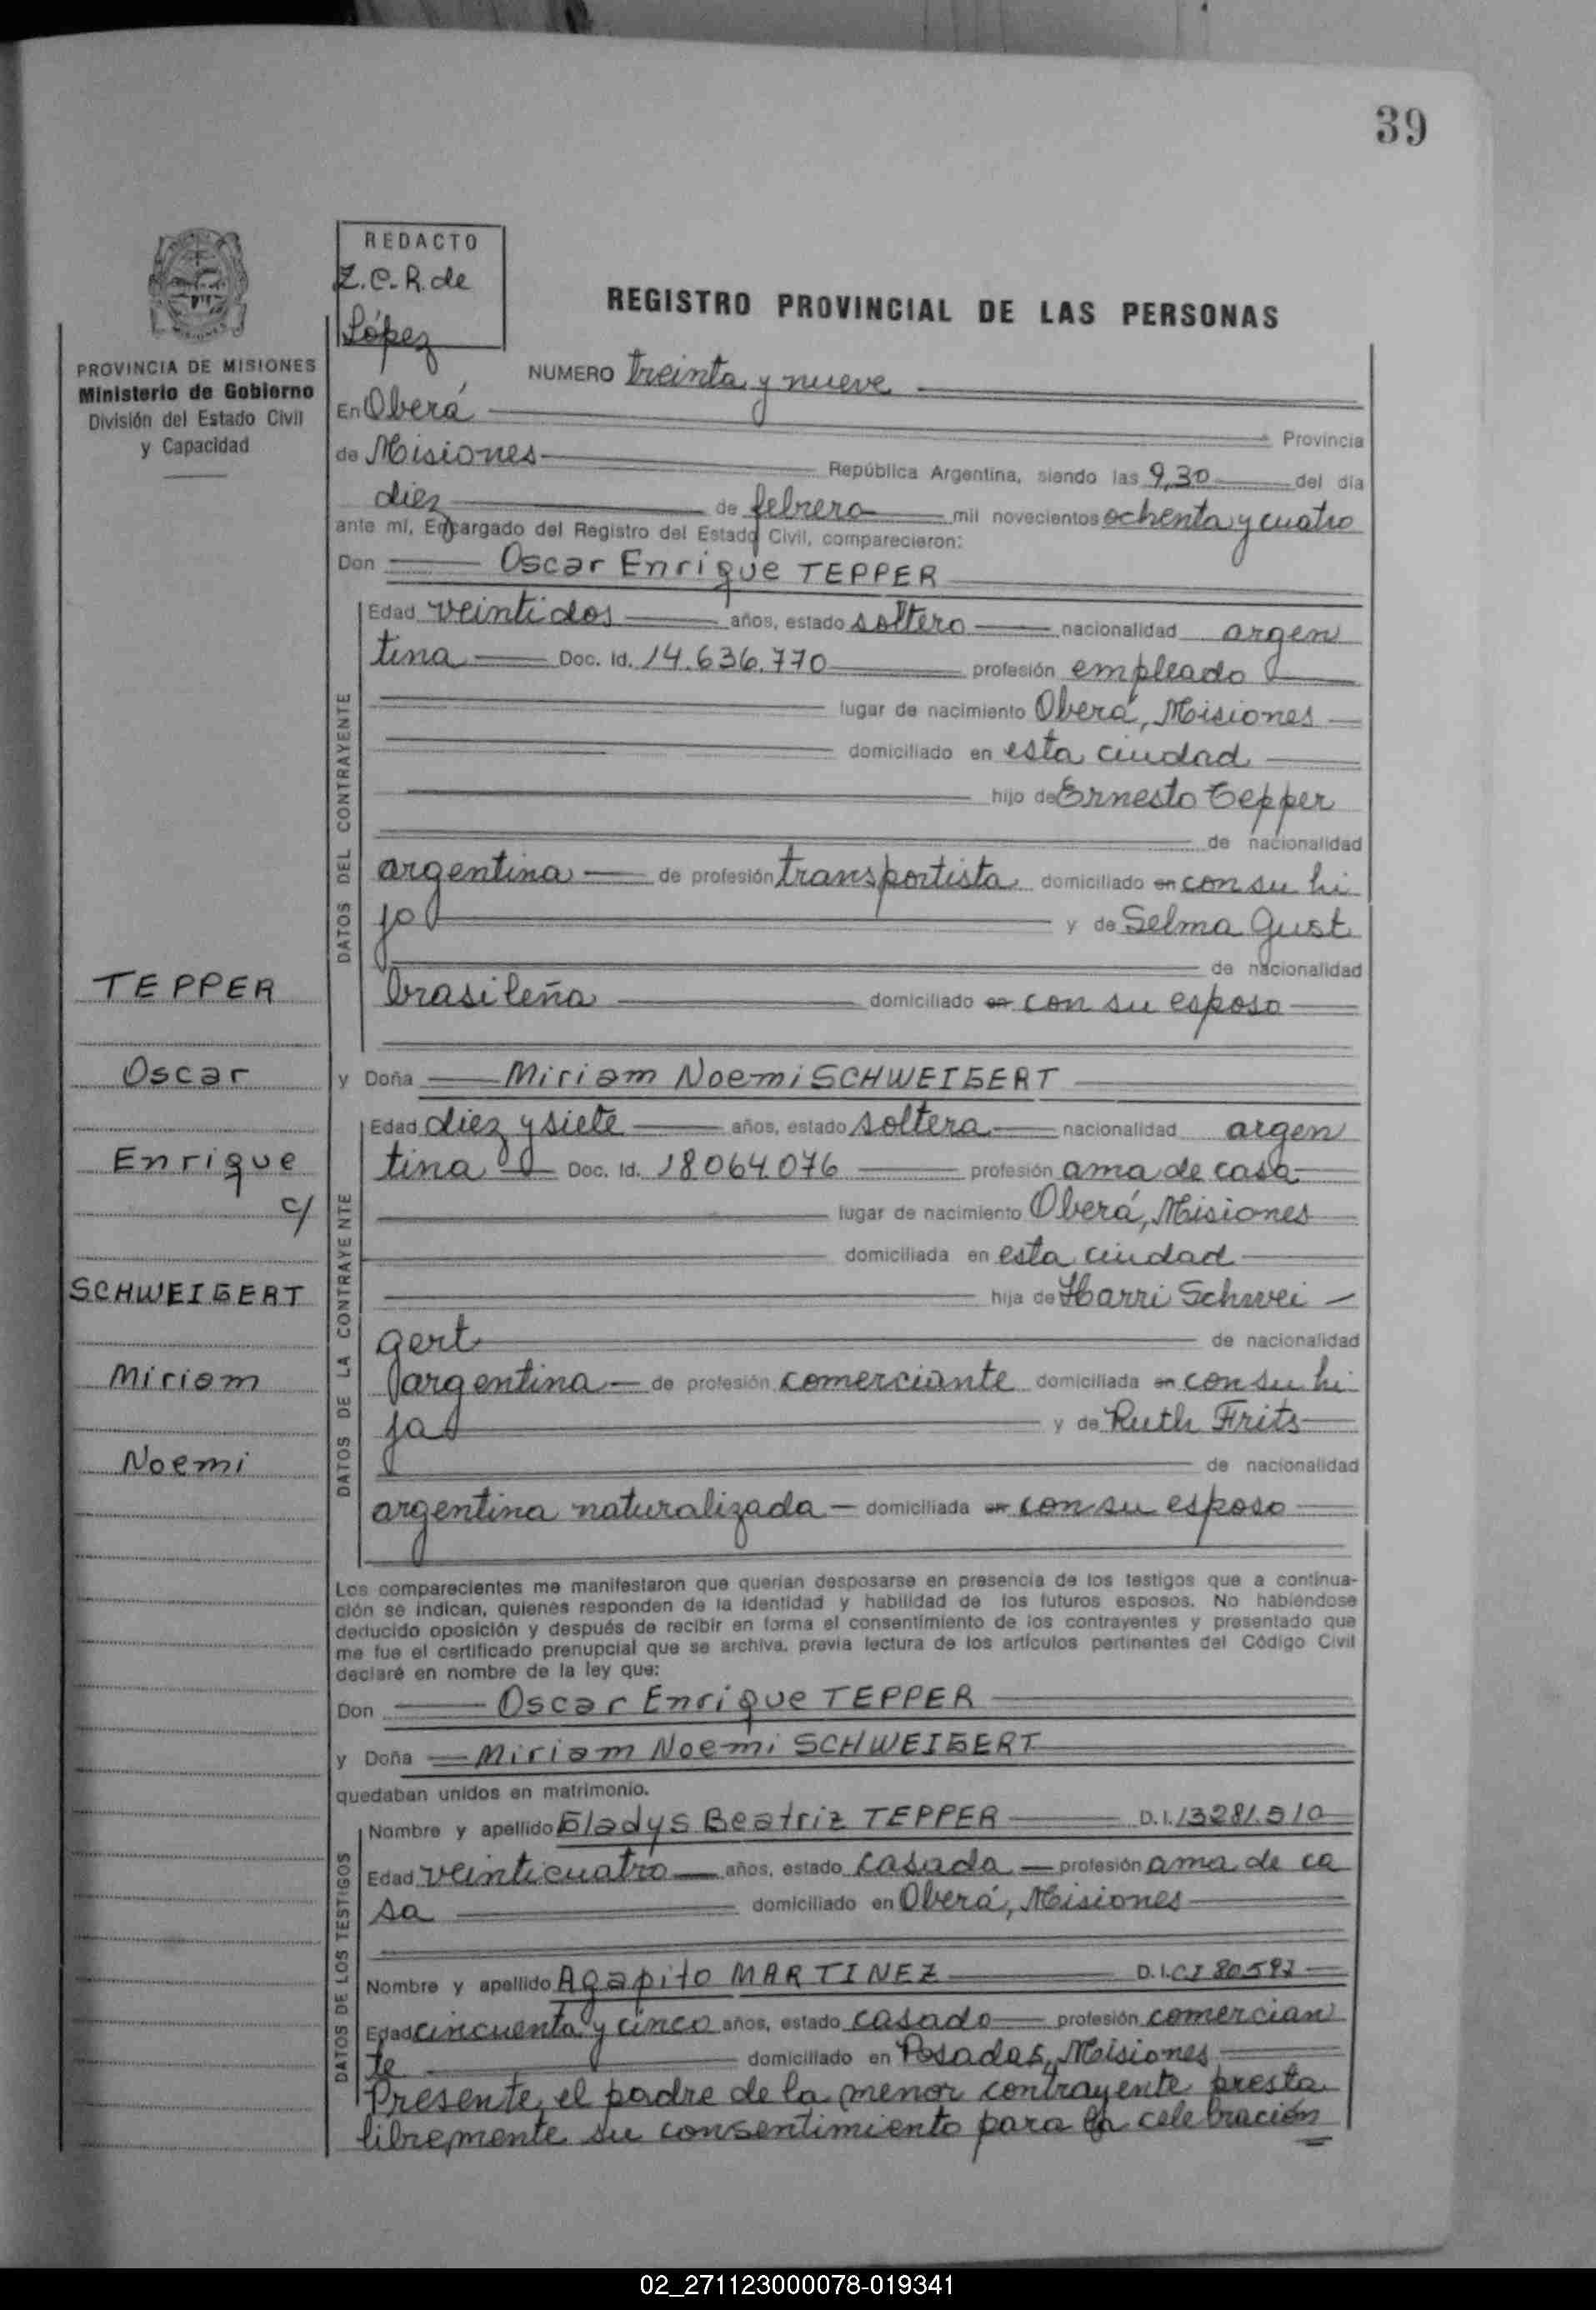 39
REDACTO
Z.C.R. de
López
REGISTRO PROVINCIAL DE LAS PERSONAS
PROVINCIA DE MISIONES
Ministerio de Gobierno
División del Estado Civil
y Capacidad
NUMERO treinta y nueve
En Oberá Provincia
de Misiones República Argentina, siendo las 9,30 del día
diez de febrero mil novecientos ochenta y cuatro
ante mí, Encargado del Registro del Estado Civil, comparecieron:
Don Oscar Enrique TEPPER
DATOS DEL CONTRAYENTE
Edad veintidos años, estado soltero nacionalidad argen
tina Doc. Id. 14.636.770 profesión empleado
lugar de nacimiento Oberá, Misiones
domiciliado en esta ciudad
hijo de Ernesto Tepper
de nacionalidad
argentina de profesión transportista domiciliado en con su hi
jo y de Selma Gust
de nacionalidad
brasileña domiciliado en con su esposo
y Doña Miriam Noemi SCHWEIGERT
DATOS DE LA CONTRAYENTE
Edad diez y siete años, estado soltera nacionalidad argen
tina Doc. Id. 18.064.076 profesión ama de casa
lugar de nacimiento Oberá, Misiones
domiciliada en esta ciudad
hija de Harri Schwei-
gert de nacionalidad
argentina de profesión comerciante domiciliada en con su hi
ja y de Ruth Frits
de nacionalidad
argentina naturalizada domiciliada en con su esposo
TEPPER
Oscar
Enrique
c/
SCHWEIGERT
Miriam
Noemi
Los comparecientes me manifestaron que querían desposarse en presencia de los testigos que a continua-
ción se indican, quienes responden de la identidad y habilidad de los futuros esposos. No habiéndose
deducido oposición y después de recibir en forma el consentimiento de los contrayentes y presentado que
me fue el certificado prenupcial que se archiva, previa lectura de los artículos pertinentes del Código Civil
declaré en nombre de la ley que:
Don Oscar Enrique TEPPER
y Doña Miriam Noemi SCHWEIGERT
quedaban unidos en matrimonio.
DATOS DE LOS TESTIGOS
Nombre y apellido Gladys Beatriz TEPPER D.I. 13281.510
Edad veinticuatro años, estado casada profesión ama de ca
sa domiciliado en Oberá, Misiones
Nombre y apellido Agapito MARTINEZ D.I. CI 80.592
Edad cincuenta y cinco años, estado casado profesión comercian
te domiciliado en Posadas, Misiones
Presente el padre de la menor contrayente presta
libremente su consentimiento para la celebración
02_271123000078-019341